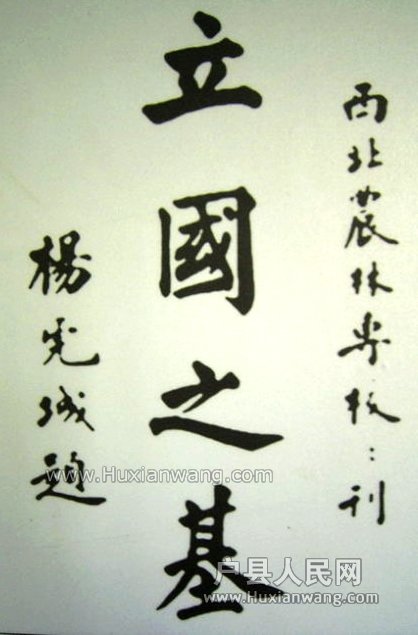 西北農林專校：刊
立國之基
楊虎城題
www.Huxianwang.com
户县人民网
www.Huxianwang.com